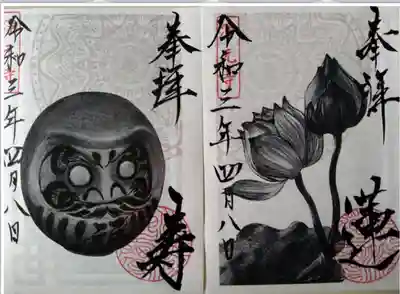 奉拝
令和三年四月八日
寿
奉拝
令和三年四月八日
蓮